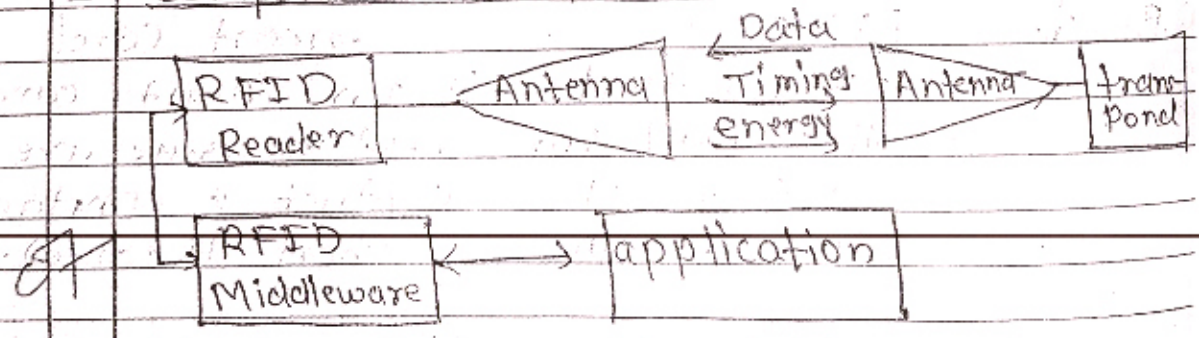 RFID
Reader
Antenna
Data
Timing
energy
Antenna
trans-
Pond
RFID
Middleware
application